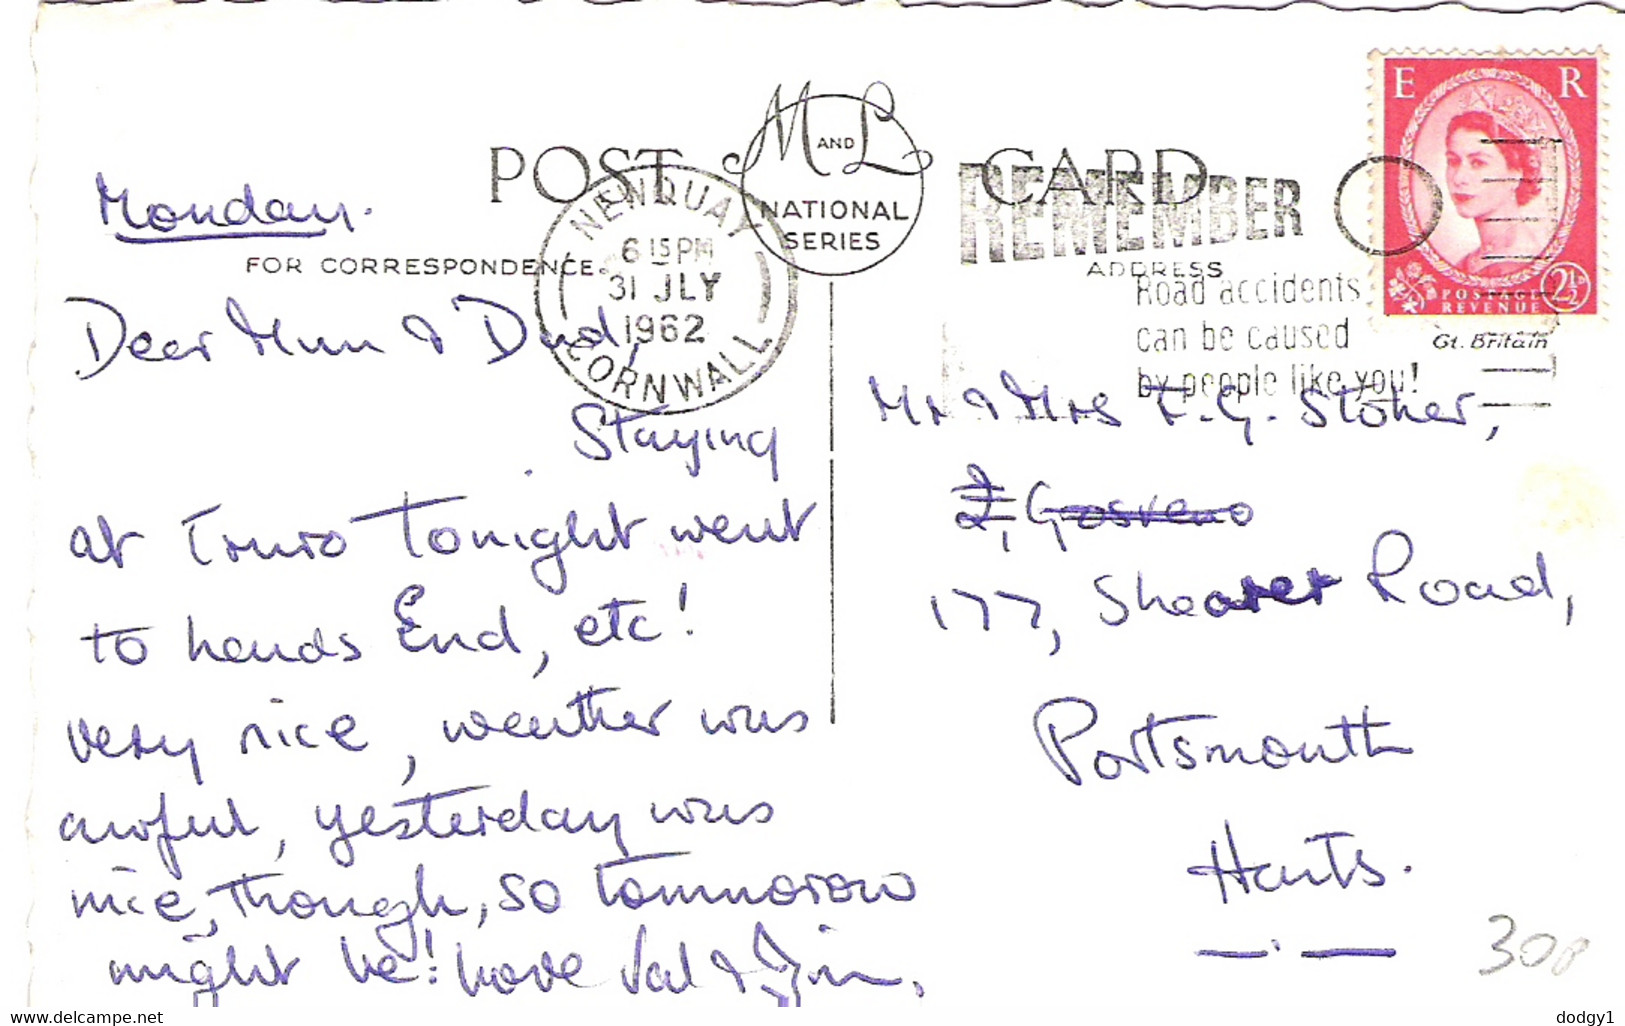 POST CARD
M AND L
NATIONAL
SERIES
FOR CORRESPONDENCE.
ADDRESS
NEWQUAY
6 15 PM
31 JLY
1962
CORNWALL
REMEMBER
Road accidents
can be caused
by people like you!
E R
POSTAGE
REVENUE
2½D
Gt. Britain
Monday.
Dear Mum & Dad,
Staying
at Truro tonight went
to Lands End, etc!
very nice, weather was
awful, yesterday was
nice, though, so tommorow
might be! Love Val & Jim.
Mr & Mrs F. G. Stoker,
2, Grosveno
177, Shearer Road,
Portsmouth
Hants.
30p
www.delcampe.net
dodgy1